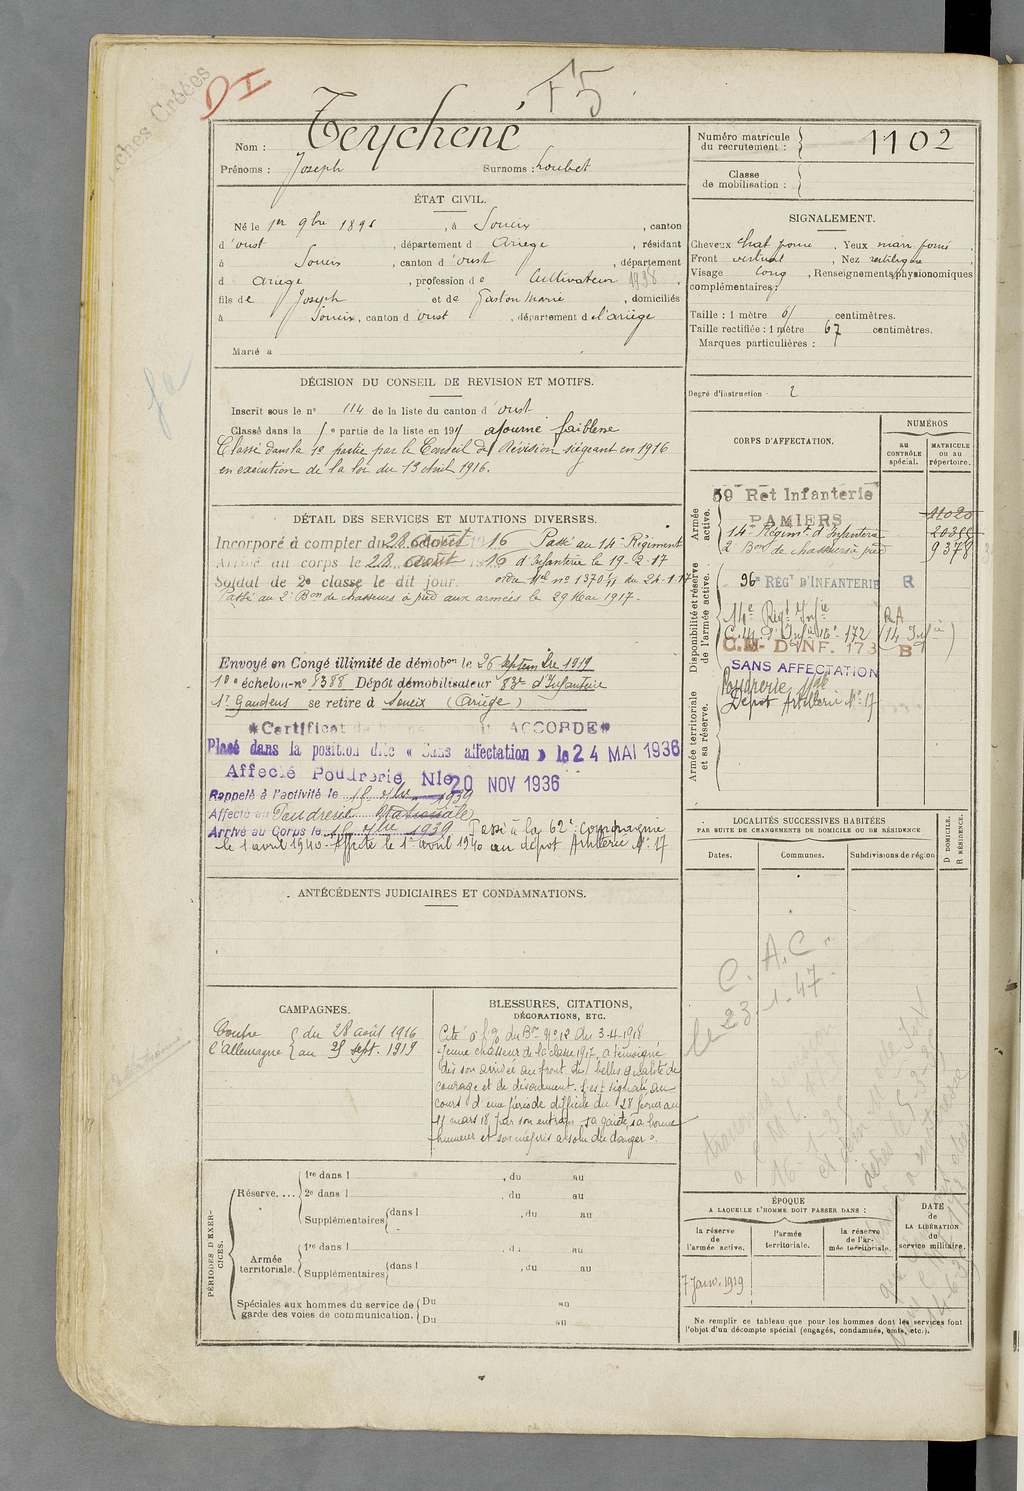 Fiches Créées
DI
F5
Nom : Teychené
Prénoms : Joseph Surnoms : Loubet
Numéro matricule du recrutement : 1102
Classe de mobilisation :
ÉTAT CIVIL.
Né le 1er 9bre 1896, à Soueix, canton
d'Oust, département d Ariège, résidant
à Soueix, canton d'Oust, département
d Ariège, profession de Cultivateur 1938
fils de Joseph et de Gaston Marie, domiciliés
à Soueix, canton d'Oust, département de l'Ariège
Marié à
SIGNALEMENT.
Cheveux chat. foncé, Yeux marr. foncé,
Front vertical, Nez rectiligne,
Visage long, Renseignements physionomiques
complémentaires :
Taille : 1 mètre 61 centimètres.
Taille rectifiée : 1 mètre 67 centimètres.
Marques particulières :
Degré d'instruction 2
DÉCISION DU CONSEIL DE REVISION ET MOTIFS.
Inscrit sous le n° 114 de la liste du canton d'Oust
Classé dans la 5e partie de la liste en 191 ajourné faiblesse
Classé dans la 1e partie par le Conseil de Révision siégeant en 1916
en exécution de la loi du 13 avril 1916.
DÉTAIL DES SERVICES ET MUTATIONS DIVERSES.
Incorporé à compter du 28 août 1916 Passé au 14e Régiment
Arrivé au corps le 28 août 1916 d'Infanterie le 19-2-17
Soldat de 2e classe le dit jour.
Passé au 2e Bon de chasseurs à pied aux armées le 29 Mai 1917.
Envoyé en Congé illimité de démobon le 26 septembre 1919
10e échelon-n° 8388 Dépôt démobilisateur 83e d'Infanterie
St Gaudens se retire à Soueix (Ariège)
*Certificat de ACCORDÉ*
Placé dans la position dite « Sans affectation » le 24 MAI 1936
Affecté Poudrerie Nle 20 NOV 1936
Rappelé à l'activité le 15 7bre 1939
Affecté au Poudrerie Nationale
Arrivé au Corps le 15 7bre 1939 Passé à la 62e compagnie
le 1 avril 1940. Affecté le 1er avril 1940 au dépot Artillerie N° 17
CORPS D'AFFECTATION.
NUMÉROS
au CONTRÔLE spécial.
MATRICULE ou au répertoire.
Armée active.
59 Rgt Infanterie
PAMIERS
14e Régimt d'Infanterie
2e Bon de chasseurs à pied 9378
Disponibilité et réserve de l'armée active.
96e RÉGt D'INFANTERIE R
14e Régt Infie RA
C.M. D'INF. 173 B
SANS AFFECTATION
Armée territoriale et sa réserve.
Poudrerie Nale
Dépot Artillerie N° 17
LOCALITÉS SUCCESSIVES HABITÉES
PAR SUITE DE CHANGEMENTS DE DOMICILE OU DE RÉSIDENCE
Dates. Communes. Subdivisions de région
D DOMICILE.
R RÉSIDENCE.
C. A. C.
le 23-1-47
ANTÉCÉDENTS JUDICIAIRES ET CONDAMNATIONS.
CAMPAGNES.
Contre l'Allemagne { du 28 août 1916
au 25 sept. 1919
BLESSURES, CITATIONS,
DÉCORATIONS, ETC.
Cité à l'o/ du Bon N° 12 du 3-4-1918
"Jeune chasseur de la classe 1917, a témoigné
dès son arrivée au front de belles qualités de
courage et de dévouement. S'est signalé au
cours d'une période difficile du 28 février au
11 mars 18 par son entrain, sa gaieté, sa bonne
humeur et son mépris absolu du danger".
PÉRIODES D'EXERCICES.
Réserve....
1re dans l , du au
2e dans l , du au
Supplémentaires dans l , du au
Armée territoriale.
1re dans l , du au
Supplémentaires dans l , du au
Spéciales aux hommes du service de garde des voies de communication.
Du au
Du au
ÉPOQUE
A LAQUELLE L'HOMME DOIT PASSER DANS :
la réserve de l'armée active.
l'armée territoriale.
la réserve de l'armée territoriale.
DATE de LA LIBÉRATION du service militaire.
7 Janv. 1919
Ne remplir ce tableau que pour les hommes dont les services font
l'objet d'un décompte spécial (engagés, condamnés, omis, etc.).